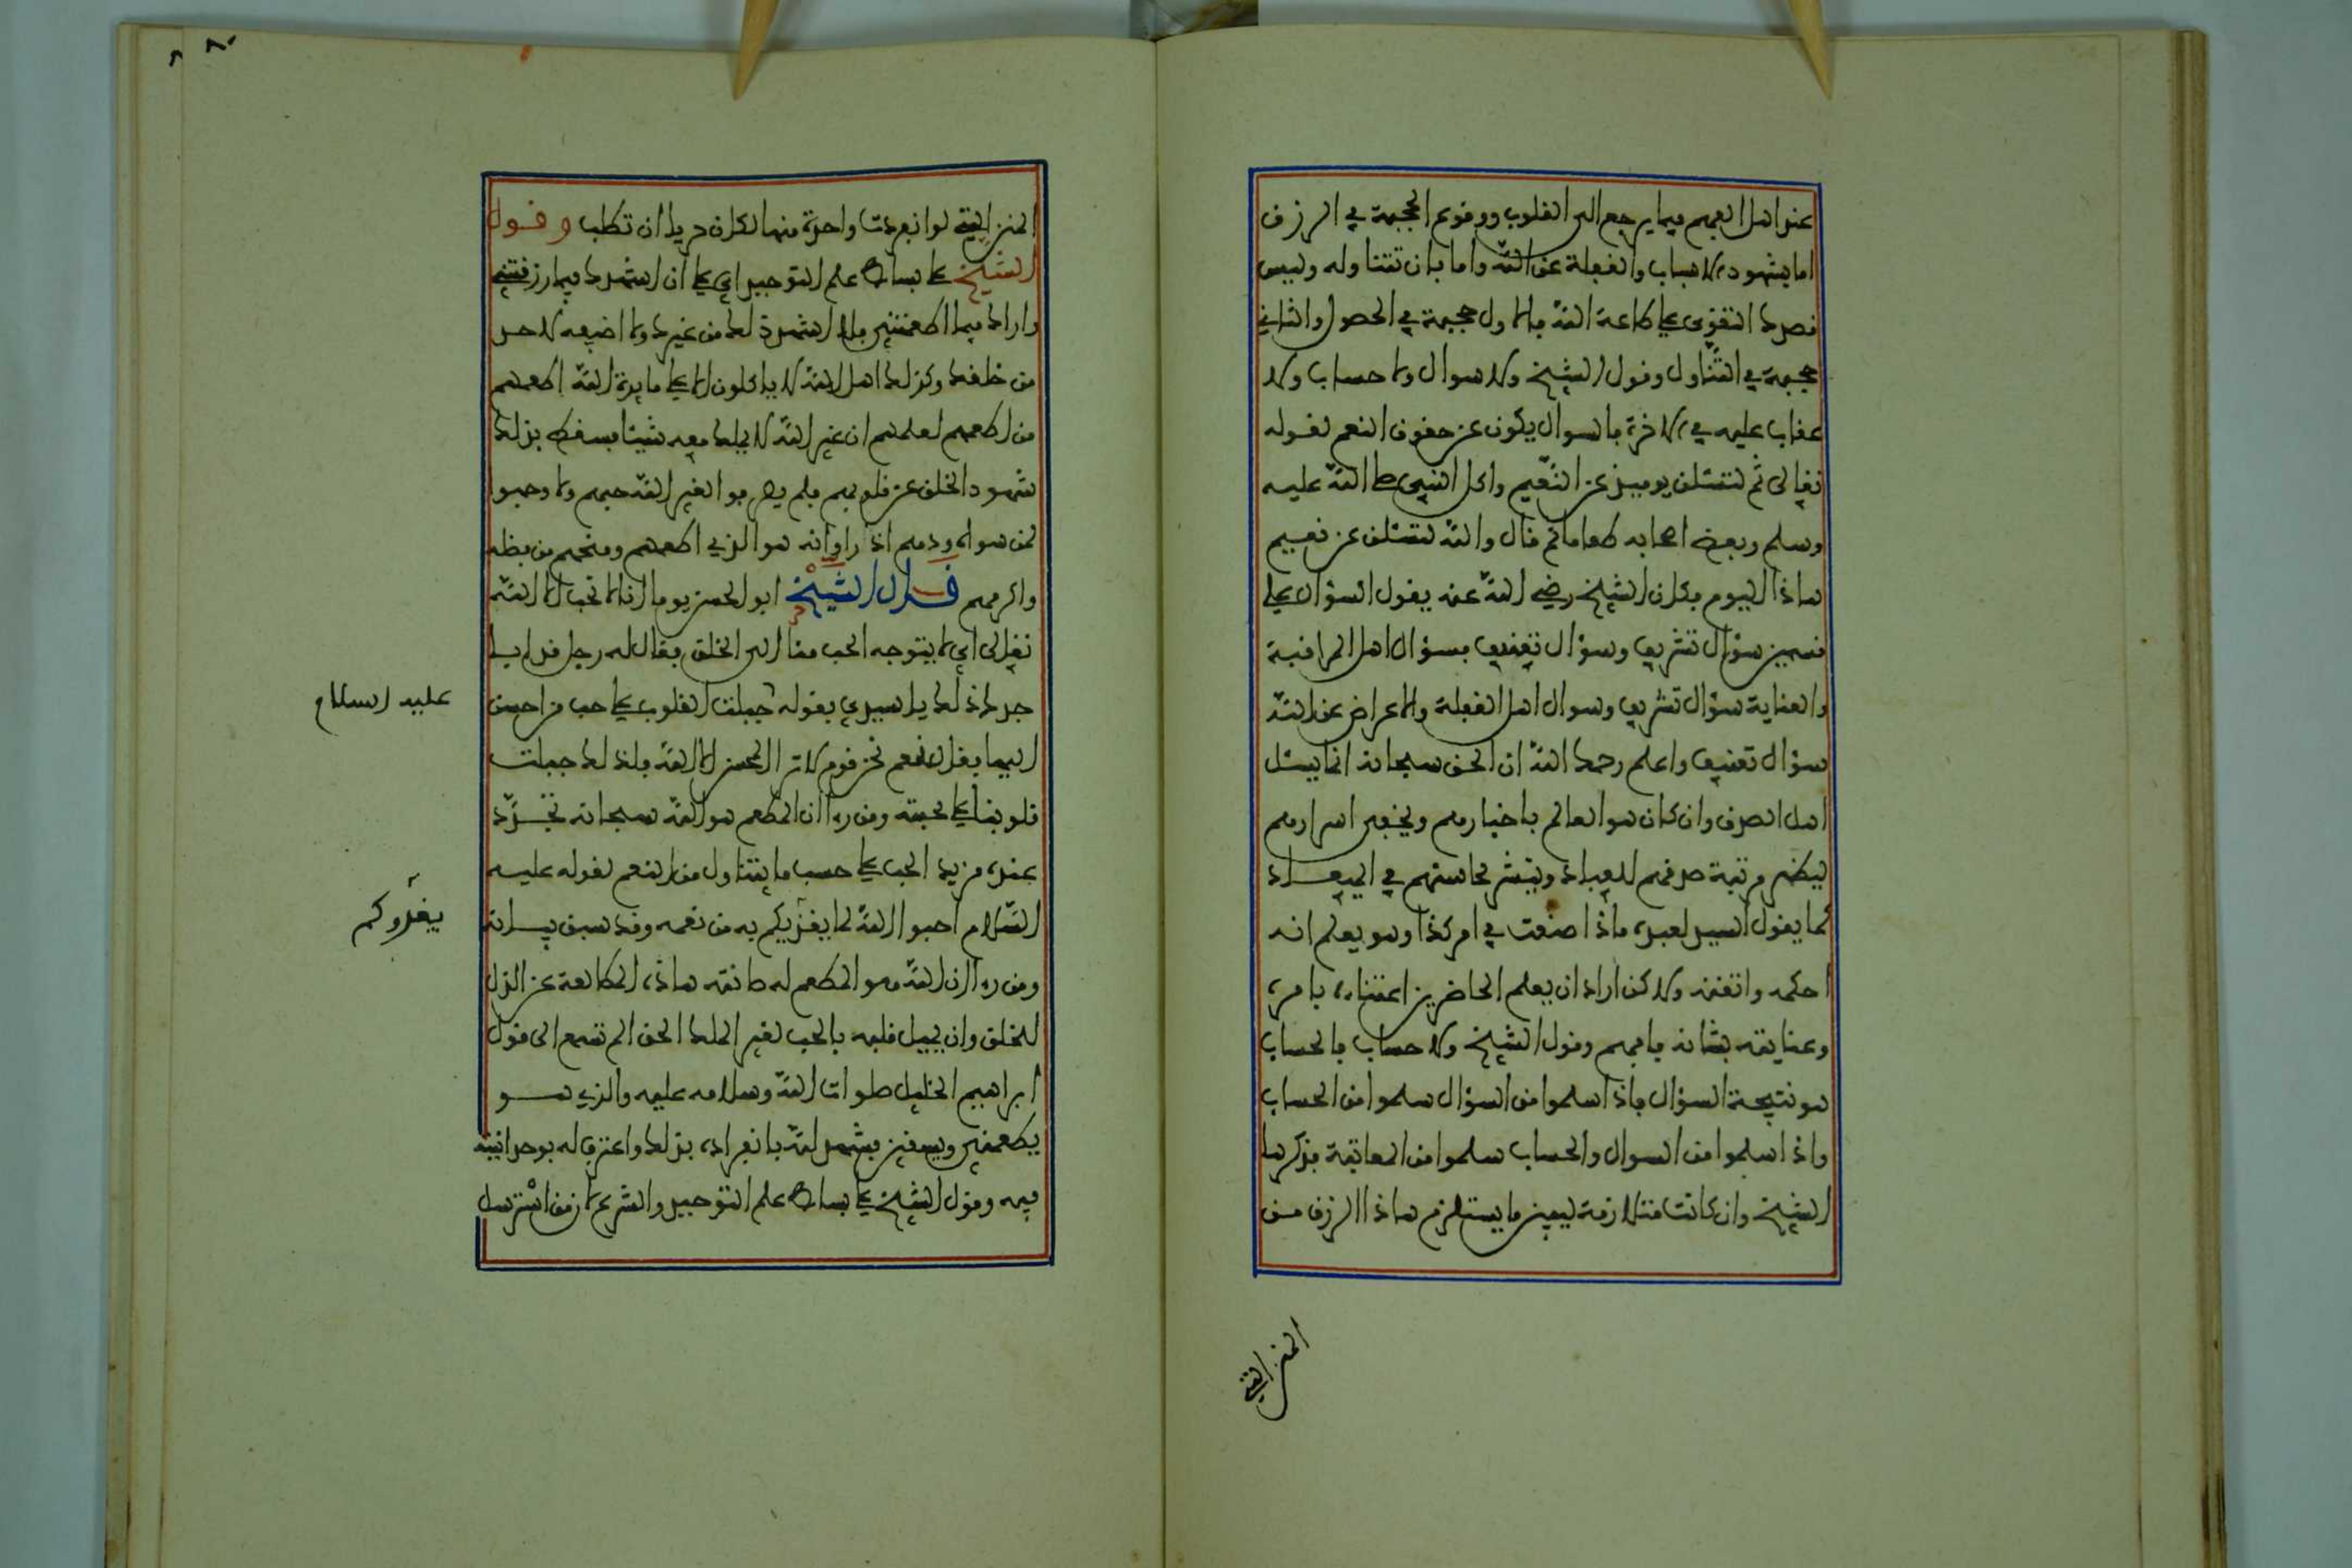 عند اهل الفهم فيما يرجع الى القلوب ووقوع الحجبة في الرزق
اما بشهود الاسباب والغفلة عن الله واما بان تتناوله وليس
قصدك التقوى على طاعة الله فالاول حجبة في الحصول والثاني
حجبة في التناول وقول الشيخ ولا سوال ولا حساب ولا
عقاب عليه في الاخرة فالسوال يكون عن حقوق النعم لقوله
تعالى ثم لتسئلن يوميذ عن النعيم واكل النبي صلى الله عليه
وسلم وبعض اصحابه طعاما ثم قال والله لتسئلن عن نعيم
هاذا اليوم فكان الشيخ رضي الله عنه يقول السؤال على
قسمين سؤال تشريف وسؤال تعنيف فسؤال اهل المراقبة
والعناية سؤال تشريف وسوال اهل الغفلة والاعراض عن الله
سؤال تعنيف واعلم رحمك الله ان الحق سبحانه انما يسئل
اهل الصدق وان كان هو العالم باخبارهم وبخفى اسرارهم
ليظهر مرتبة صدقهم للعباد وينشر محاسنهم في الميعاد
كما يقول السيد لعبده ماذا صنعت في امر كذا وهو يعلم انه
احكمه واتقنه ولاكن اراد ان يعلم الحاضرين اعتناءه بامره
وعنايته بشانه فافهم وقول الشيخ ولا حساب فالحساب
هو نتيجة السؤال فاذا سلموا من السؤال سلموا من الحساب
واذا سلموا من السوال والحساب سلموا من المعاقبة فذكرها
الشيخ وان كانت متلازمة ليبين ما يستلزم هاذا الرزق من
المنن التي
المنن التي لو انفردت واحدة منها لكان حريا ان تطلب وقول
الشيخ على بساط علم التوحيد اي على ان اشهدك فيما رزقتني
واراك فيما اطعمتني فلا اشهد ذلك من غيرك ولا اضيفه لاحد
من خلقك وكذلك اهل الله لا ياكلون الا على مايدة الله اطعمهم
من اطعمهم لعلمهم ان غير الله لا يملك معه شيئا فسقط بذلك
شهود الخلق عن قلوبهم فلم يصرفوا لغير الله حبهم ولا وجهوا
لمن سواه ودهم اذ راوا انه هو الذي اطعمهم ومنحهم من فضله
واكرمهم قال الشيخ ابو الحسن يوما انا لا نحب الا الله
تعالى اي لا يتوجه الحب منا الى الخلق فقال له رجل قد ابى
جدك ذلك يا سيدي بقوله جبلت القلوب على حب من احسن
عليه السلام
اليها فقال نعم نحن قوم لا نرى المحسن الا الله فلذلك جبلت
قلوبنا على محبته ومن راى ان المطعم هو الله سبحانه تجدد
عنده مزيد الحب على حسب ما يتناول من النعم لقوله عليه
السلام احبوا الله لما يغذيكم به من نعمه وقد سبق بيانه
يغذوكم
ومن راى ان الله هو المطعم له صانته هاذه المطالعة عن الذل
للخلق وان يميل قلبه بالحب لغير الملك الحق الم تسمع الى قول
ابراهيم الخليل صلوات الله وسلامه عليه والذي هو
يطعمني ويسقين فشهد لله بانفراده بذلك واعترف له بوحدانيته
فيه وقول الشيخ على بساط علم التوحيد والشرع لان من استرسل